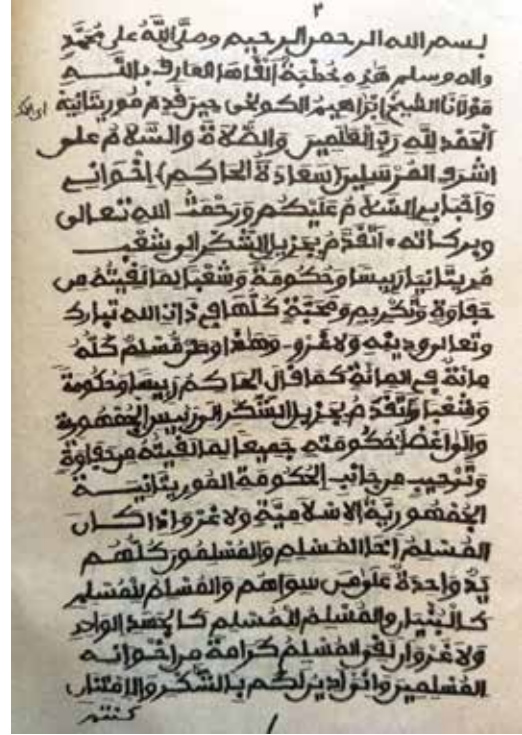 ٢
بسم الله الرحمن الرحيم وصلى الله على محمد
واله وسلم هذه خطبة ألقاها العارف بالله
مولانا الشيخ إبراهيم الكولخي حين قدم موريتانية
الحمد لله رب العلمين والصلاة والسلام على
اشرف المرسلين (سعادة الحاكم) إخواني
وأحبابي السلام عليكم ورحمت الله تعالى
وبركاته * أتقدم بجزيل الشكر إلى شعب
مريتانيا رييسا وحكومة وشعبا لما لقيته من
حفاوة وتكريم ومحبة كلها في ذات الله تبارك
وتعالى ودينه ولا غرو - وهذا وطن مسلم كله
مائة في المائة كما قال الحاكم رييسا وحكومة
وشعبا وأتقدم بجزيل الشكر إلى رييس الجمهورية
وإلى أعضا حكومته جميعا لما لقيته من حفاوة
وترحيب من جانب الحكومة الموريتانية
الجمهورية الاسلامية ولا غرو اذا كان
المسلم أخا المسلم والمسلمون كلهم
يد واحدة على من سواهم والمسلم للمسلم
كالبنيان والمسلم للمسلم كالجسد الواحد
ولا غرو ان لقي المسلم كرامة من اخوانه
المسلمين وانى أدين لكم بالشكر والامتنان
كنتم